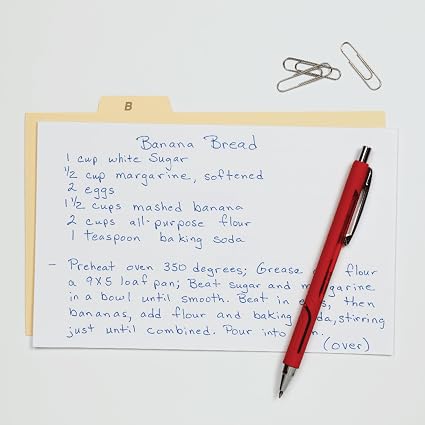 B
Banana Bread
1 cup white Sugar
1/2 cup margarine, softened
2 eggs
1 1/2 cups mashed banana
2 cups all-purpose flour
1 teaspoon baking soda
- Preheat oven 350 degrees; Grease flour
a 9x5 loaf pan; Beat sugar and margarine
in a bowl until smooth. Beat in then
bananas, add flour and baking stirring
just until combined. Pour into
(over)